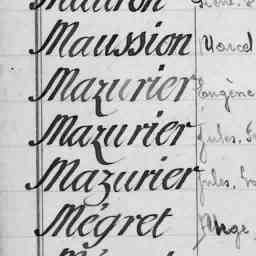 Maussion Marcel
Mazurier Eugène
Mazurier Jules,
Mazurier Jules,
Mégret